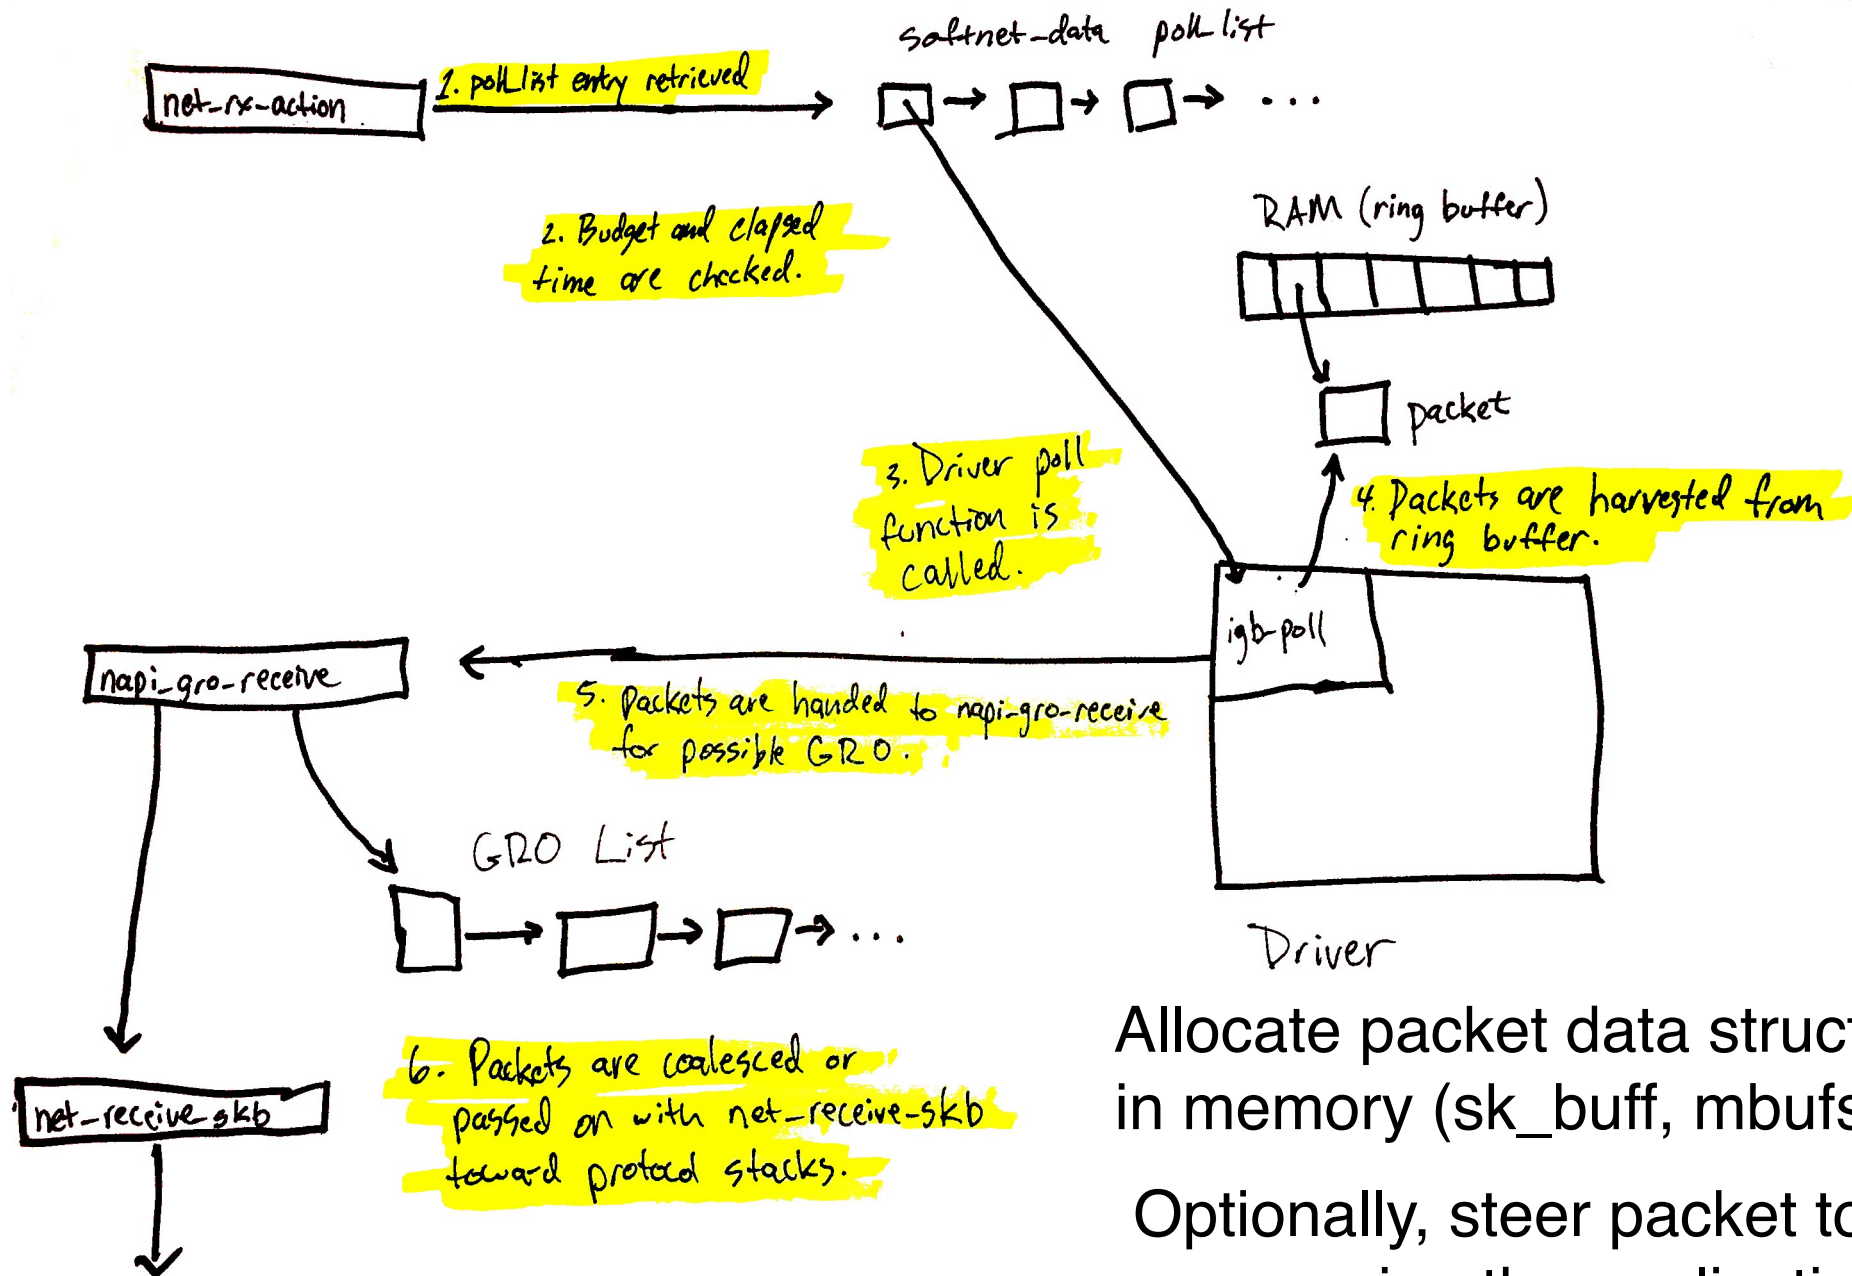 softnet_data poll_list
net_rx_action
1. poll_list entry retrieved
...
2. Budget and elapsed
time are checked.
RAM (ring buffer)
packet
3. Driver poll
function is
called.
4. Packets are harvested from
ring buffer.
igb_poll
napi_gro_receive
5. Packets are handed to napi_gro_receive
for possible GRO.
GRO List
...
Driver
6. Packets are coalesced or
passed on with net_receive_skb
toward protocol stacks.
net_receive_skb
Allocate packet data struct
in memory (sk_buff, mbufs
Optionally, steer packet to